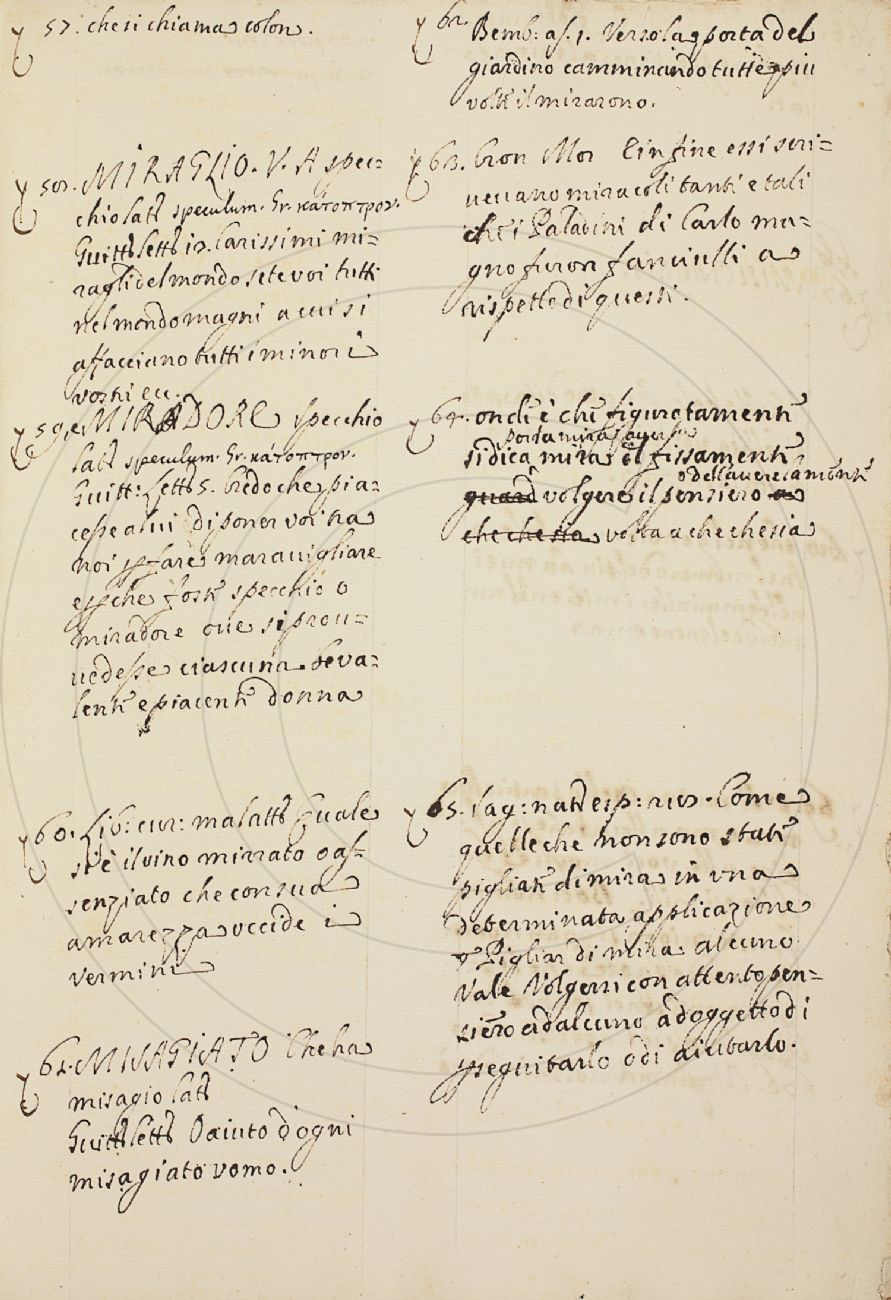 57. che si chiama colon.
58. MIRAGLIO. V. A spec-
chio latt speculum. Gr. κάτοπτρον.
Guitt. lett. 12. Carissimi mi-
ragli del mondo sete voi tutti
nel mondo magni a cui si
affacciano tutti i minori
vostri ecc.
59. e MIRADORE specchio
latt speculum. Gr. κάτοπτρον.
Guitt: lett. 5. Credo che pia-
cesse a lui di poner voi tra
noi p fare maravigliare
e pche foste specchio o
miradore ove si prov-
vedesse ciascuna. e va-
lente e piacente donna
60. Lib: cur: malatt Quale
si è il vino mirrato o as-
senziato che con sua
amarezza uccide i
vermini
61. MISAGIATO Che ha
misagio latt
Guitt. lett. O aiuto d'ogni
misagiato vomo.
62. Bemb: as. 1. Verso la porta del
giardino camminando tutte più
volte il mirarono.
63. Cron Mor E infine essi scri-
vevano miracoli tanti e tali
che i Paladini di Carlo ma-
gno furon fanciulli a
rispetto di questi.
64. onde è che figuratamente
si dica mira il fissamente
o dell'avere la mente
volgere il pensiero
volta a che che sia
65. Sag: nat: esp: 22. Come
quelle che non sono state
pigliate di mira in una
determinata applicazione
Pigliar di mira alcuno
Vale Volgersi con attento pen-
siero ad alcuno ad oggetto di
pseguitarlo o di aiutarlo.